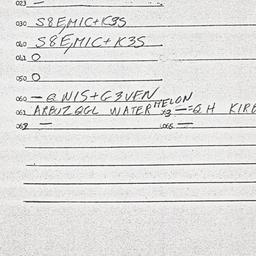 023 —
030 S8E,MIC+K3S
040 S8E,MIC+K3S
041 O
050 O
060 — Q W1S+G3VFN
061 ARBUZ QGL WATERMELON x3 —=Q H KIRB
062 — 065 —